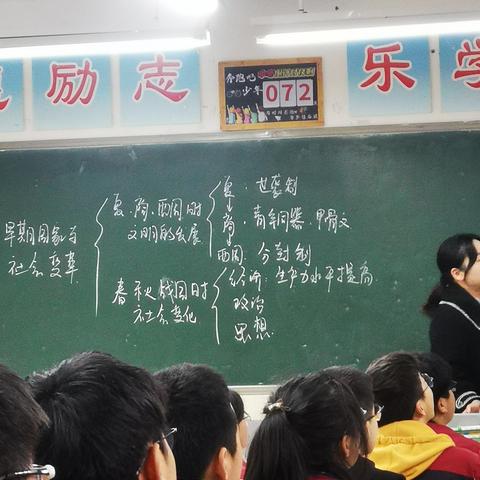 励志
乐学
奔跑吧
少年
072
早期国家与
社会变革
夏、商、西周时
文明的发展
夏：世袭制
商：青铜器、甲骨文
西周：分封制
春秋战国时
社会变化
经济：生产力水平提高
政治
思想